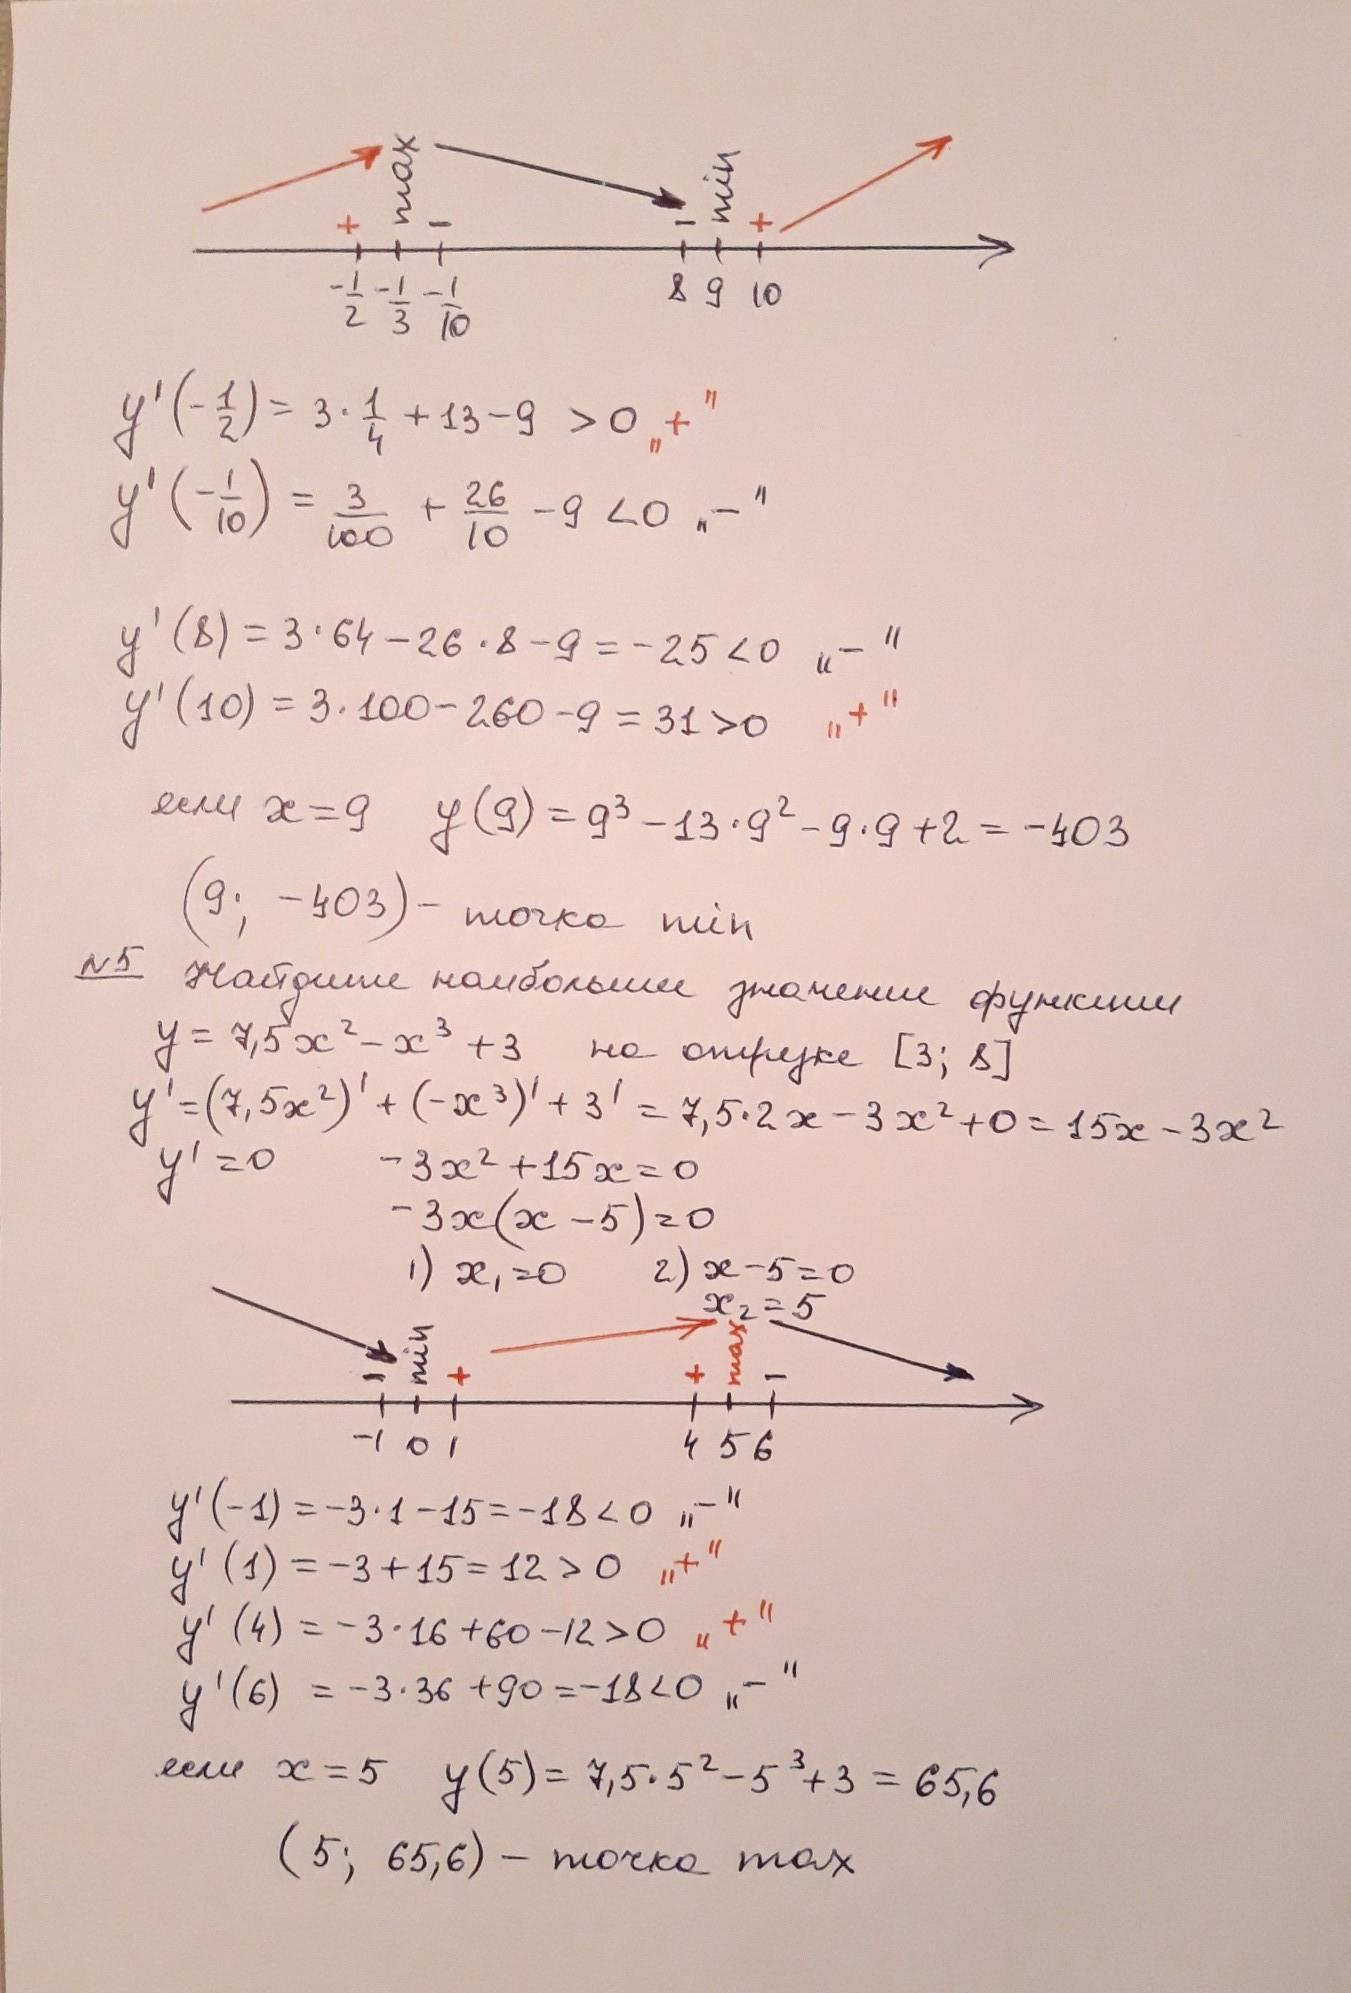 + max − − min +
-1/2 -1/3 -1/10 8 9 10
y'(-1/2) = 3·1/4 + 13 − 9 > 0 „+"
y'(-1/10) = 3/100 + 26/10 − 9 < 0 „−"
y'(8) = 3·64 − 26·8 − 9 = −25 < 0 „−"
y'(10) = 3·100 − 260 − 9 = 31 > 0 „+"
если x = 9 y(9) = 9³ − 13·9² − 9·9 + 2 = −403
(9; −403) − точка min
№5 Найдите наибольшее значение функции
y = 7,5x² − x³ + 3 на отрезке [3; 8]
y' = (7,5x²)' + (−x³)' + 3' = 7,5·2x − 3x² + 0 = 15x − 3x²
y' = 0 −3x² + 15x = 0
−3x(x − 5) = 0
1) x₁ = 0 2) x − 5 = 0
x₂ = 5
− min + + max −
−1 0 1 4 5 6
y'(−1) = −3·1 − 15 = −18 < 0 „−"
y'(1) = −3 + 15 = 12 > 0 „+"
y'(4) = −3·16 + 60 − 12 > 0 „+"
y'(6) = −3·36 + 90 = −18 < 0 „−"
если x = 5 y(5) = 7,5·5² − 5³ + 3 = 65,6
(5; 65,6) − точка max